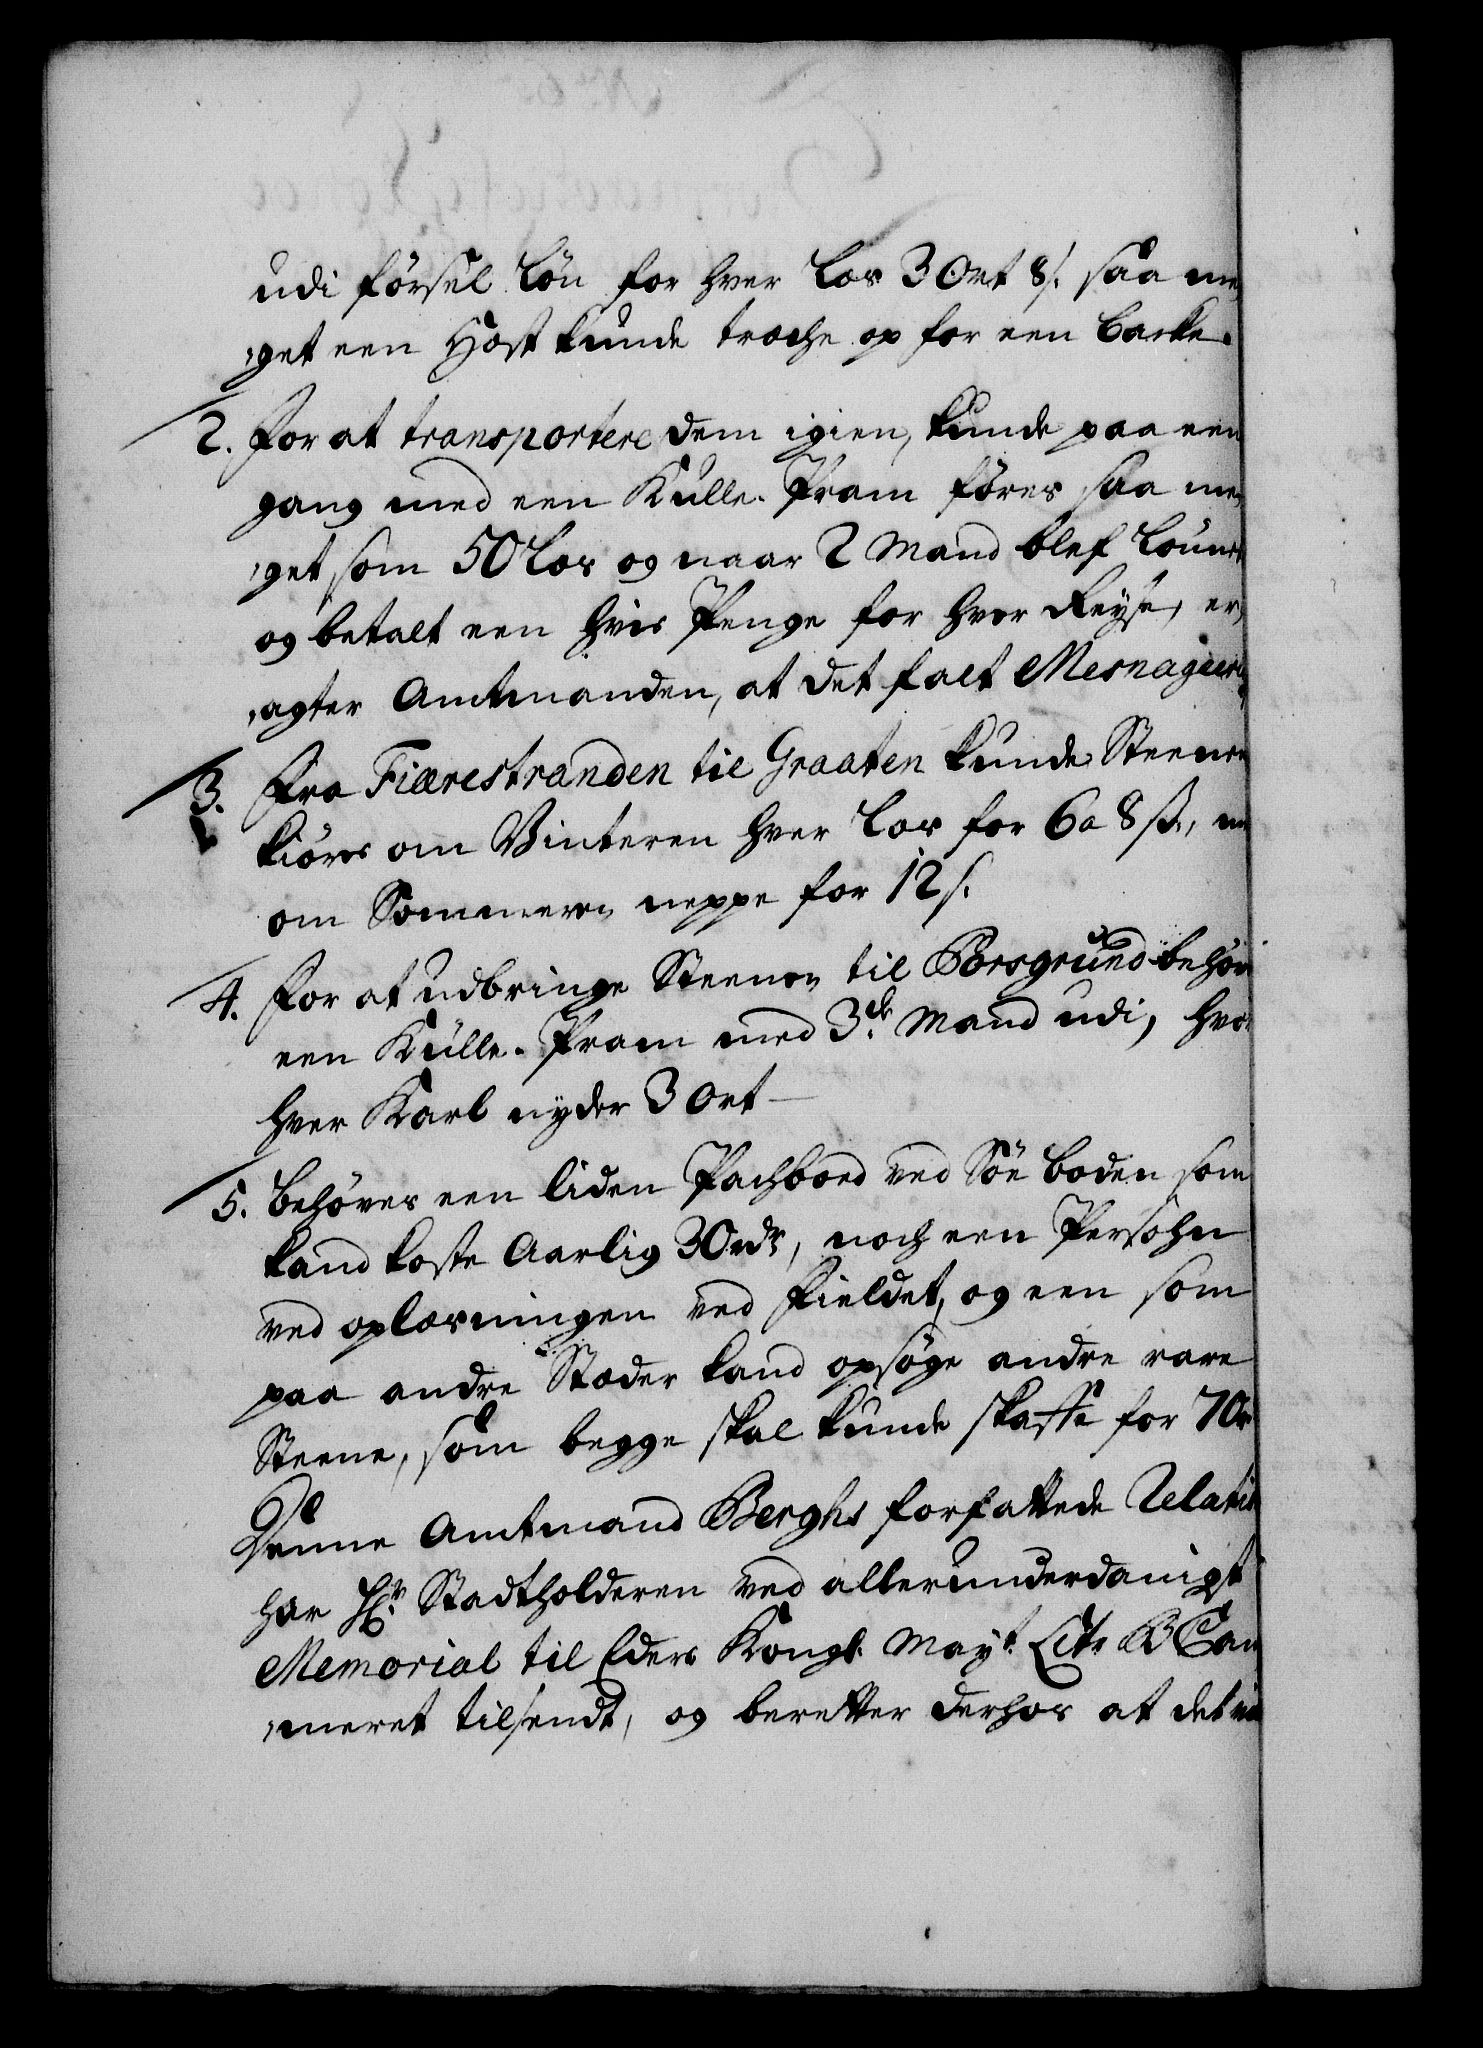 udi försel lön for hver los 3 Ort 8 s. saa me
,get een Hest kunde træche op for een backe.
2. For at transportere dem igien, kunde paa een
gang med een Kulle-Pram föres saa me,
,get som 50 los og naar 2 Mand blef
og betalt een hvis Penge for hver Reyse, er,
,agter Amtmanden, at det falt
3. Fra Fiærestranden til Graaten kunde Steenen
kiöres om Vinteren hver los for 6 a 8 s.,
om Sommeren neppe for 12 s.
4. For at udbringe Steenen til Porsgrund behöv
een Külle-Pram med 3de Mand udi, hvor
hver Karl nyder 3 Ort —
5. behöves een liden Pachboed ved Söe boden som
kand koste Aarlig 30 rdr, noch een Persohn
ved oplæsningen ved Fieldet, og een som
paa andre Stæder kand opsöge andre rare
Steene, som begge skal kunde skaffe for 70
Denne Amtmand Berghs forfattede Relati
har Hr. Stadtholderen ved allerunderdanigst
Memorial til Eders Kongl. Mayt. Litr B Cam
,meret tilsendt, og beretter derhos at det